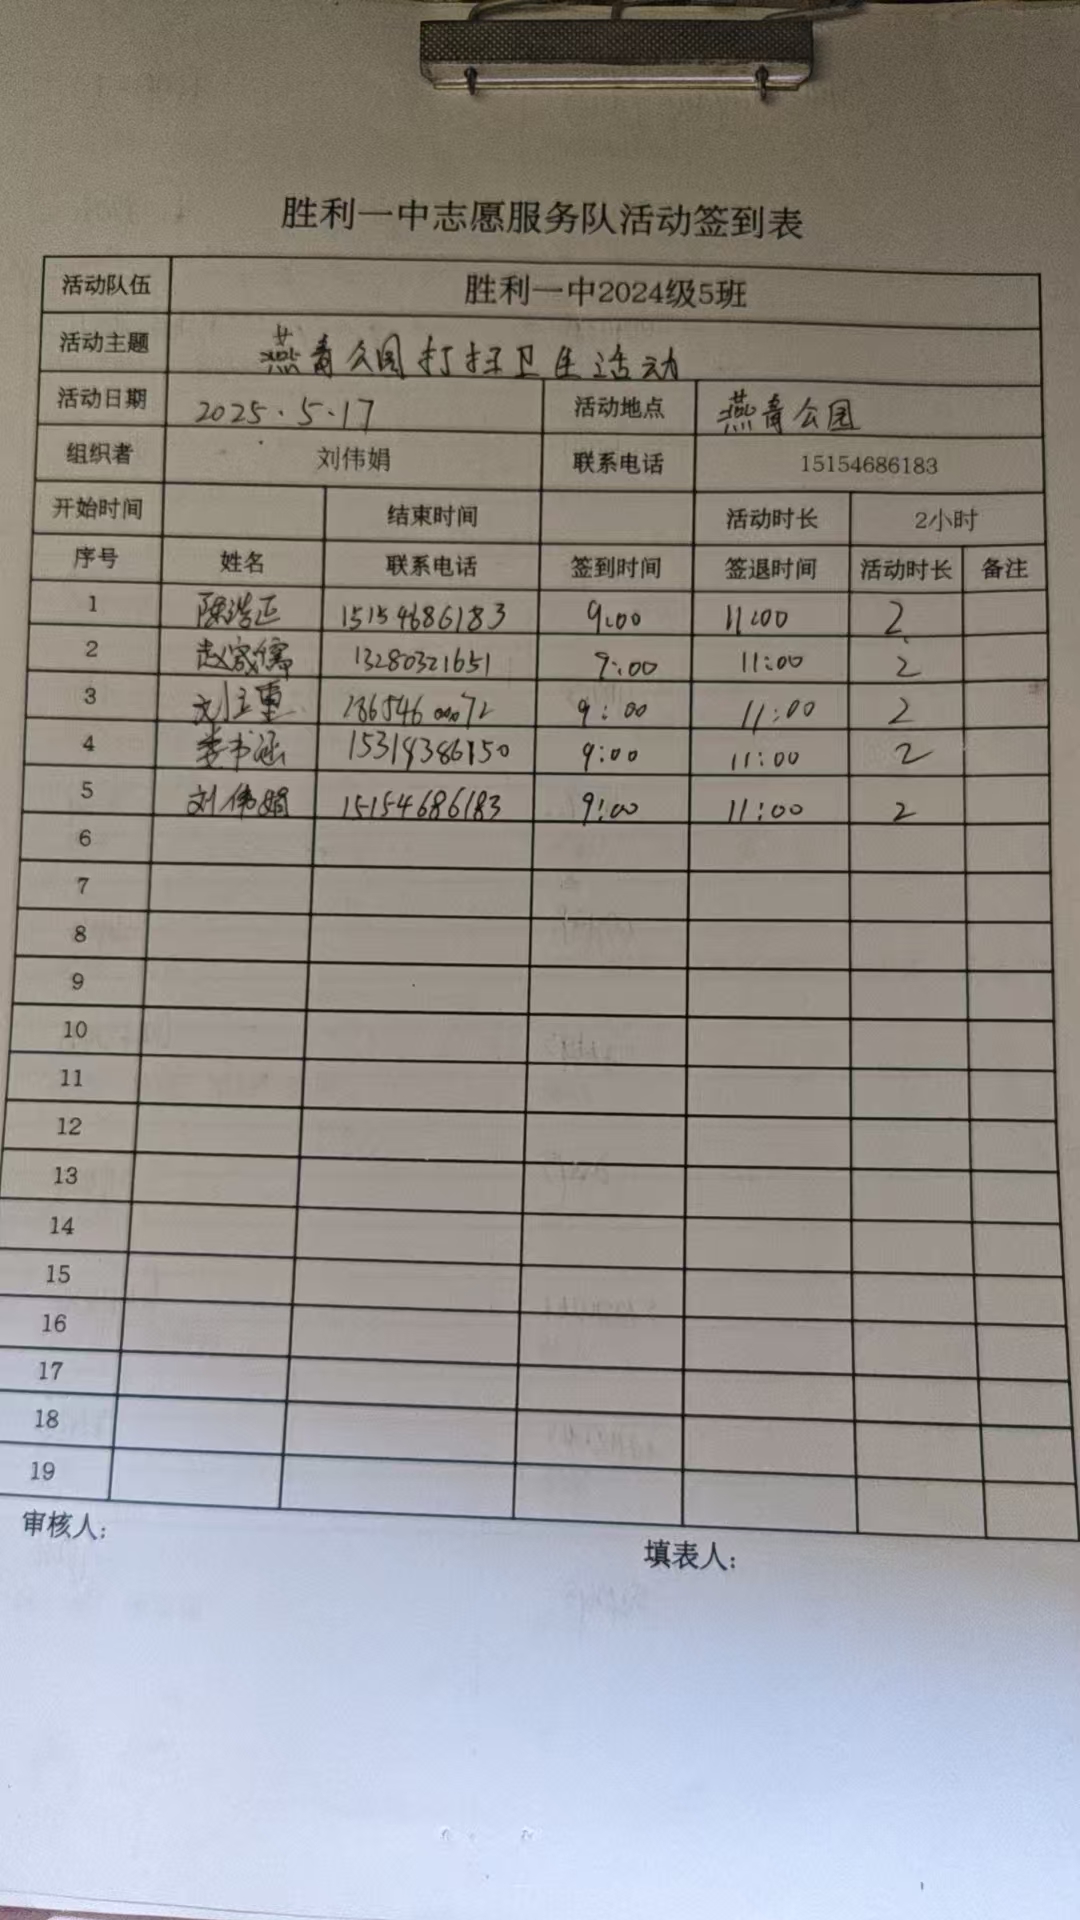 胜利一中志愿服务队活动签到表
活动队伍 胜利一中2024级5班
活动主题 燕青公园打扫卫生活动
活动日期 2025.5.17 活动地点 燕青公园
组织者 刘伟娟 联系电话 15154686183
开始时间 结束时间 活动时长 2小时
序号 姓名 联系电话 签到时间 签退时间 活动时长 备注
1 陈浩正 15154686183 9:00 11:00 2
2 13280321651 9:00 11:00 2
3 9:00 11:00 2
4 娄书涵 9:00 11:00 2
5 刘伟娟 15154686183 9:00 11:00 2
6
7
8
9
10
11
12
13
14
15
16
17
18
19
审核人: 填表人: